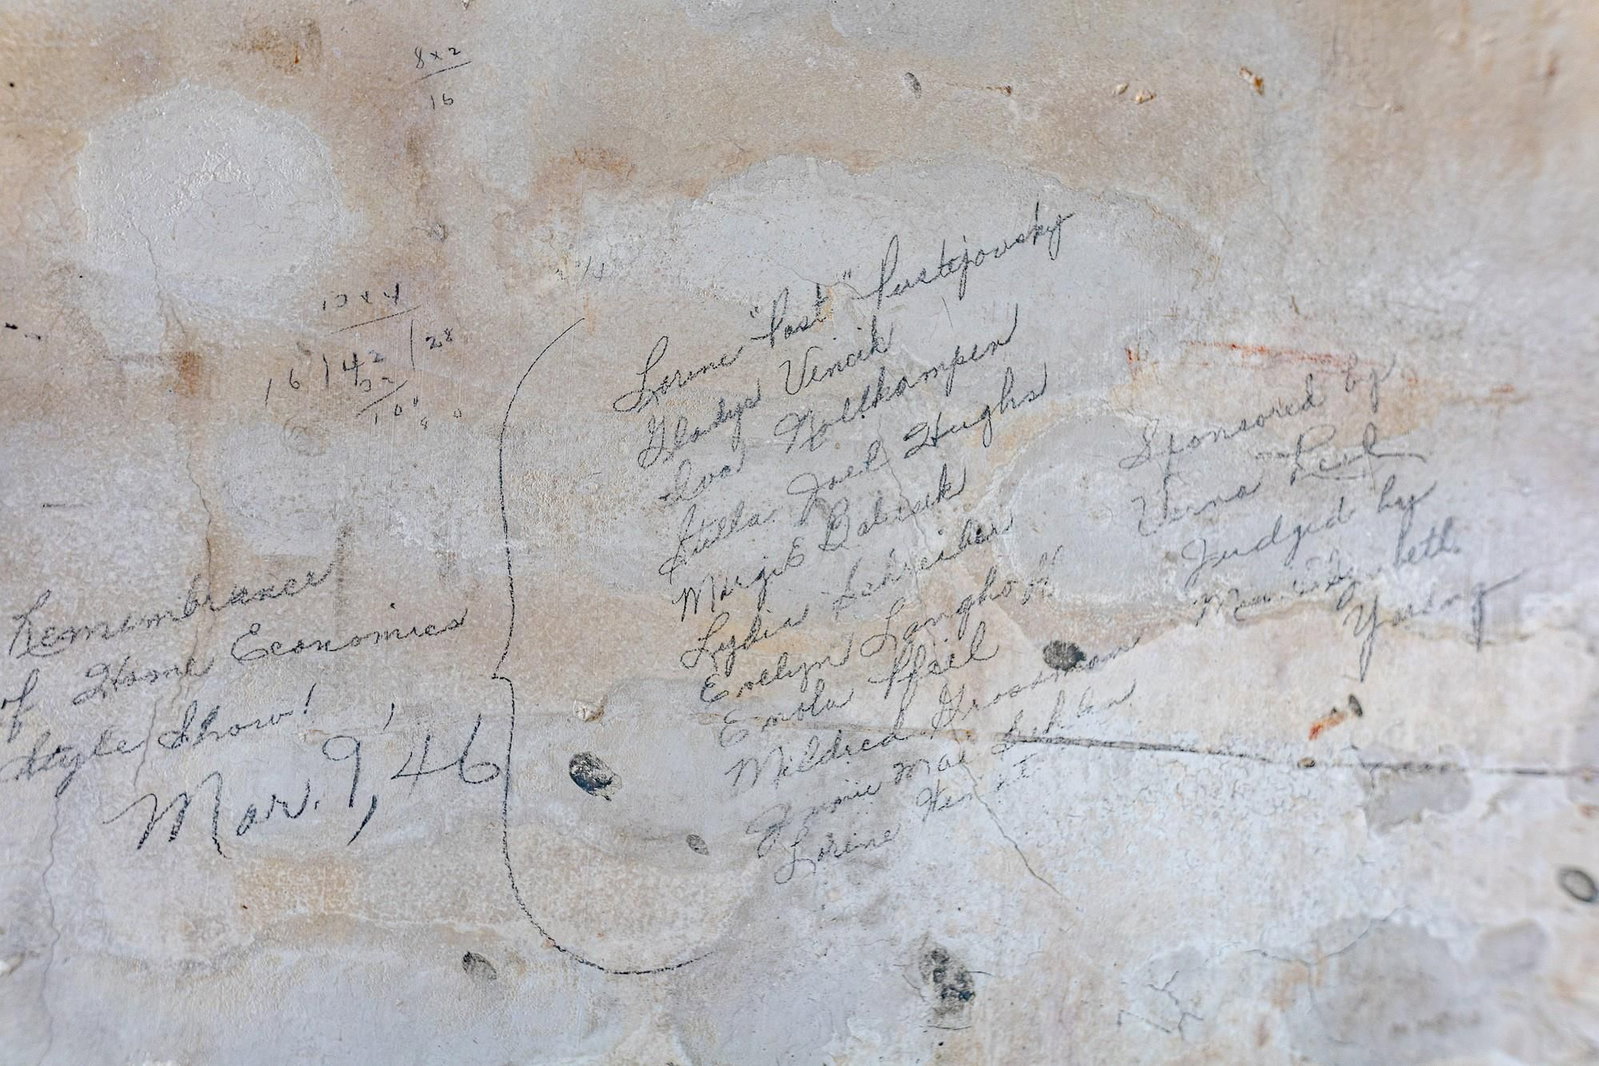 8 x 2
16
16 ) 42 ( 28
Remembrance
of Home Economics
Style Show!
Mar. 9, '46
Lorene "Past" Pustejovsky
Gladys Vincik
Iva Nollkamper
Stella Joel Hughs
Margie Balusek
Lydia Schreiber
Evelyn Langhoff
Enola Pfeil
Mildred Grossman
Mae
Lorene
Sponsored by
Verna
Judged by
Young